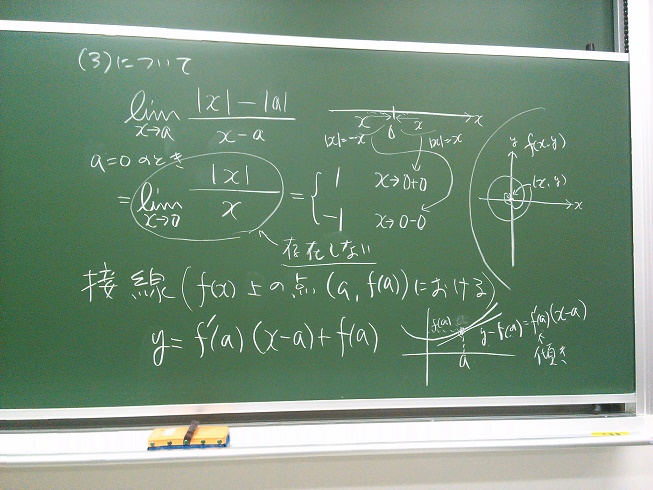 (3)について
lim x→a (|x|-|a|)/(x-a)
a=0 のとき
= lim x→0 |x|/x = { 1 x→0+0
-1 x→0-0
存在しない
x 0 x x
|x|=-x |x|=x
y f(x,y)
(x,y)
x
接線(f(x)上の点(a, f(a))における)
y=f'(a)(x-a)+f(a)
f(a)
a
y-f(a)=f'(a)(x-a)
傾き